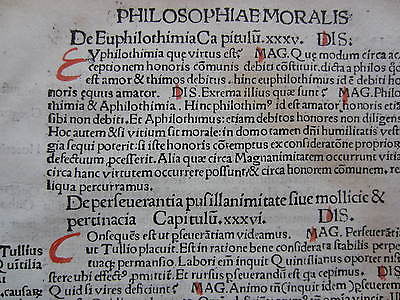 PHILOSOPHIAE MORALIS
De Euphilothimia Capitulū.xxxv. DIS:
EYphilothimia que virtus est; MAG. Que modum circa ac
ceptionem honoris cōmunis debiti cōstituit. dicta a philos qď
est amor & thimos debitus. hinc euphilothimus id ē debiti ho
noris equus amator. DIS. Extrema illius quæ sunt; MAG. Philo
thimia & Aphilothimia. Hinc philothimꝰ id est amator honoris etiā
sibi non debiti. Et Aphilothimus: etiam debitos honores non diligens
Hoc autem & si vitium sit morale: in domo tamen dn̄i humilitatis vestig
gia sequi poterit: si iste honoris cōtemptus ex consideratōne propriorū
defectuum, pcesserit. Alia quæ circa Magnanimitatem occurrunt vitia
circa hanc vicinitatem occurrere possunt; & circa honorem cōmunem. re
liqua percurramus.
De perseuerantia pusillanimitate siue mollicie &
pertinacia Capitulū.xxxvi. DIS.
COnsequēs est ut pseuerātiam videamus. MAG. Perseuerāti
Tullius
ut Tullio placuit. Est in ratione bene considerata stabilis perpe
Quītilia
tuaq; permansio. Labori em̄ inquit Quinsilianus oportet nisi
stere ubi effectꝰ, pmittit. Et rursus pseuerandi est qa cepimus. DIS
Quid si vires desicīunt; MAG. Animo tm̄ (inquit idem Seque